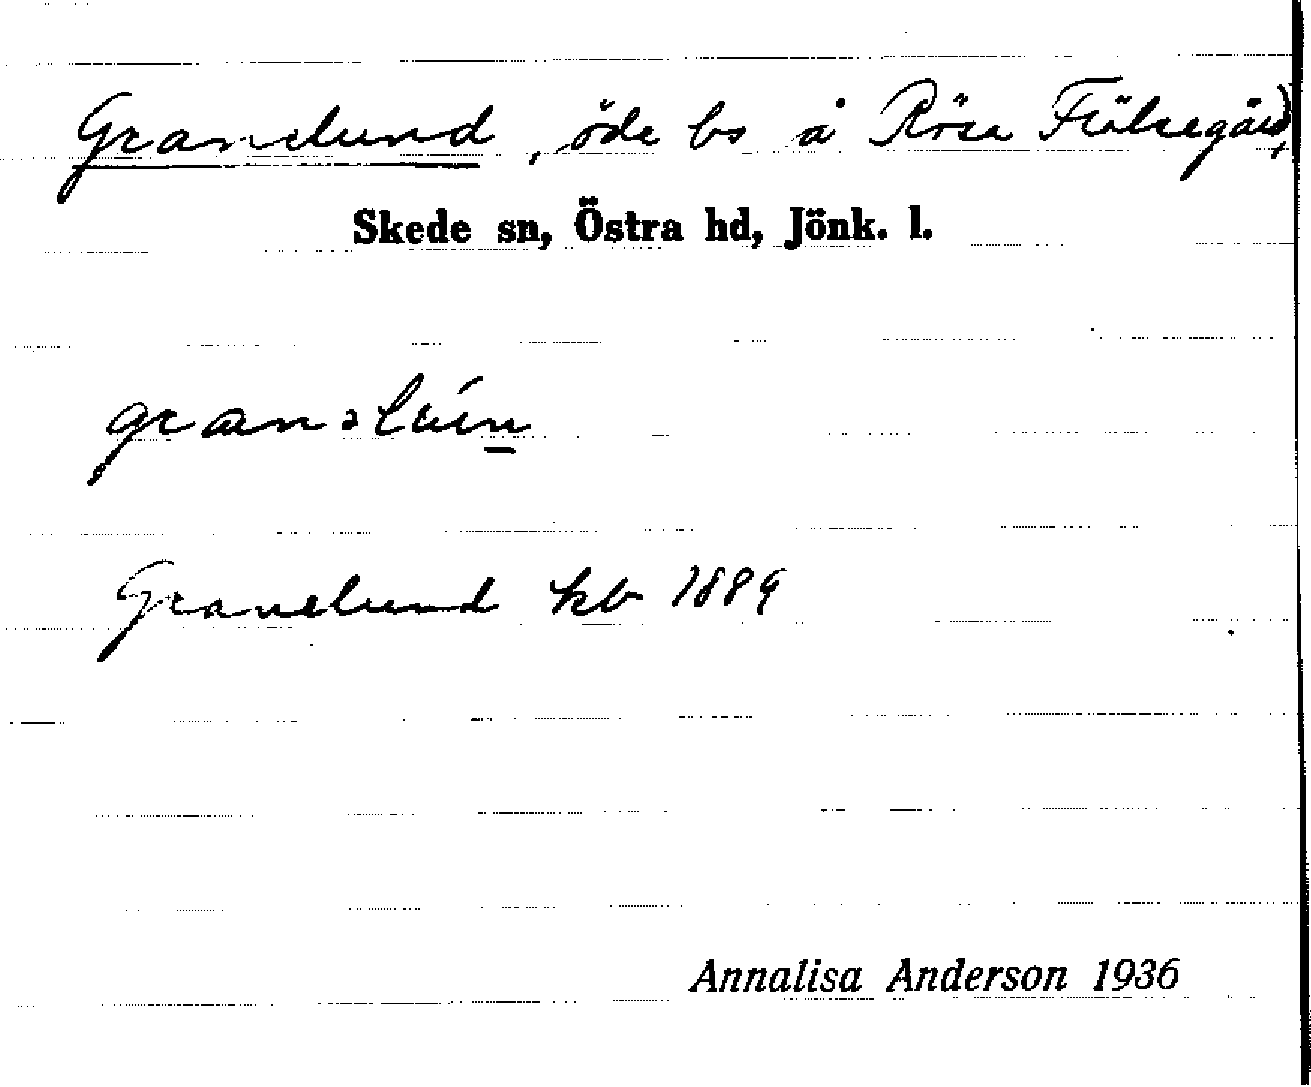 Granelund, öde bs å Röse Frälsegård,
Skede sn, Östra hd, Jönk. l.
Granelund kb 1889
Annalisa Anderson 1936